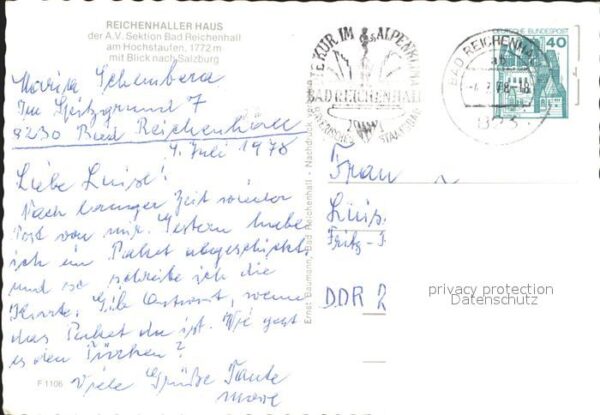 REICHENHALLER HAUS
der A.V. Sektion Bad Reichenhall
am Hochstaufen, 1772 m
mit Blick nach Salzburg
Marisa
Im Spitzgrund 7
8230 Bad Reichenhall
4. Juli 1978
Liebe Luise!
Nach langer Zeit wieder
Post von mir. Gestern habe
ich ein Paket abgeschickt
und so schreibe ich die
Karte. Gib Antwort, wenn
das Paket da ist. Wie geht
es den
Viele Grüße Tante
F 1106
Ernst Baumann, Bad Reichenhall - Nachdruck
KUR IM ALPENKLIMA
BAD REICHENHALL
BAYERISCHES STAATSBAD
BAD REICHENHALL
823
DEUTSCHE BUNDESPOST
40
Frau
Luis
Fritz-
DDR
privacy protection
Datenschutz